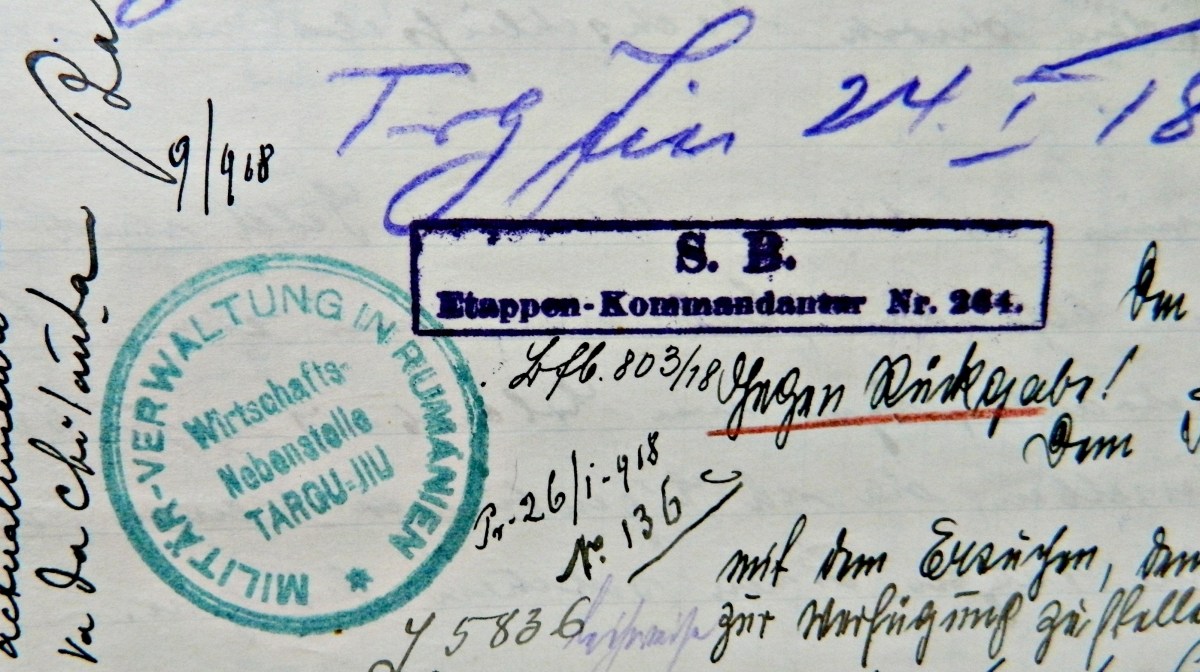 Trg Jiu 24. I. 18
9/918
S. B.
Etappen-Kommandantur Nr. 264.
MILITÄR-VERWALTUNG IN RUMÄNIEN
Wirtschafts-
Nebenstelle
TARGU-JIU
803/18
Gegen Rückgabe!
Dem
Pr. 26/I-918
No. 136
mit dem Ersuchen, den
5836
zur Verfügung zu stelle
va da chitanța